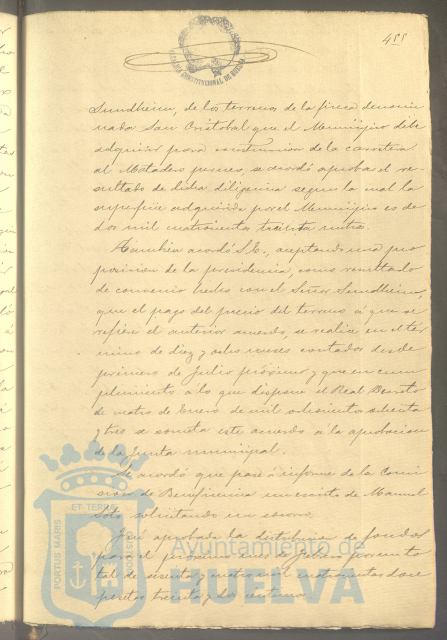 488
ALCALDIA CONSTITUCIONAL DE HUELVA
Sundheim, de los terrenos de la finca denomi
nada San Cristobal que el Municipio debe
adquirir para construccion de la carretera
al Matadero
se acordó aprobar el re-
sultado de dicha diligencia segun la cual la
superficie adquirida por el Municipio es de
dos mil cuatrocientos treinta metros
Tambien acordó S.E., aceptando una pro
posicion de la presidencia, como resultado
de convenio hecho con el Señor Sundheim,
que el pago del precio del terreno á que se
refiere el anterior acuerdo, se realice en el tér
mino de diez y ocho meses contados desde
primero de Julio próximo y que en cum
plimiento á lo que dispone el Real Decreto
de cuatro de Enero de mil ochocientos ochenta
y tres se someta este acuerdo á la aprobacion
de la Junta municipal.
Se acordó que pase á informe de la Comi
sion de Beneficencia un escrito de Manuel
Soto solicitando un socorro.
Fué aprobada la distribucion de fondos
para el
de Julio por un to
tal de sesenta y cuatro mil cuatrocientas doce
pesetas treinta y dos centimos.
PORTUS MARIS
ET TERRAE
CUSTODIA
Ayuntamiento de
HUELVA